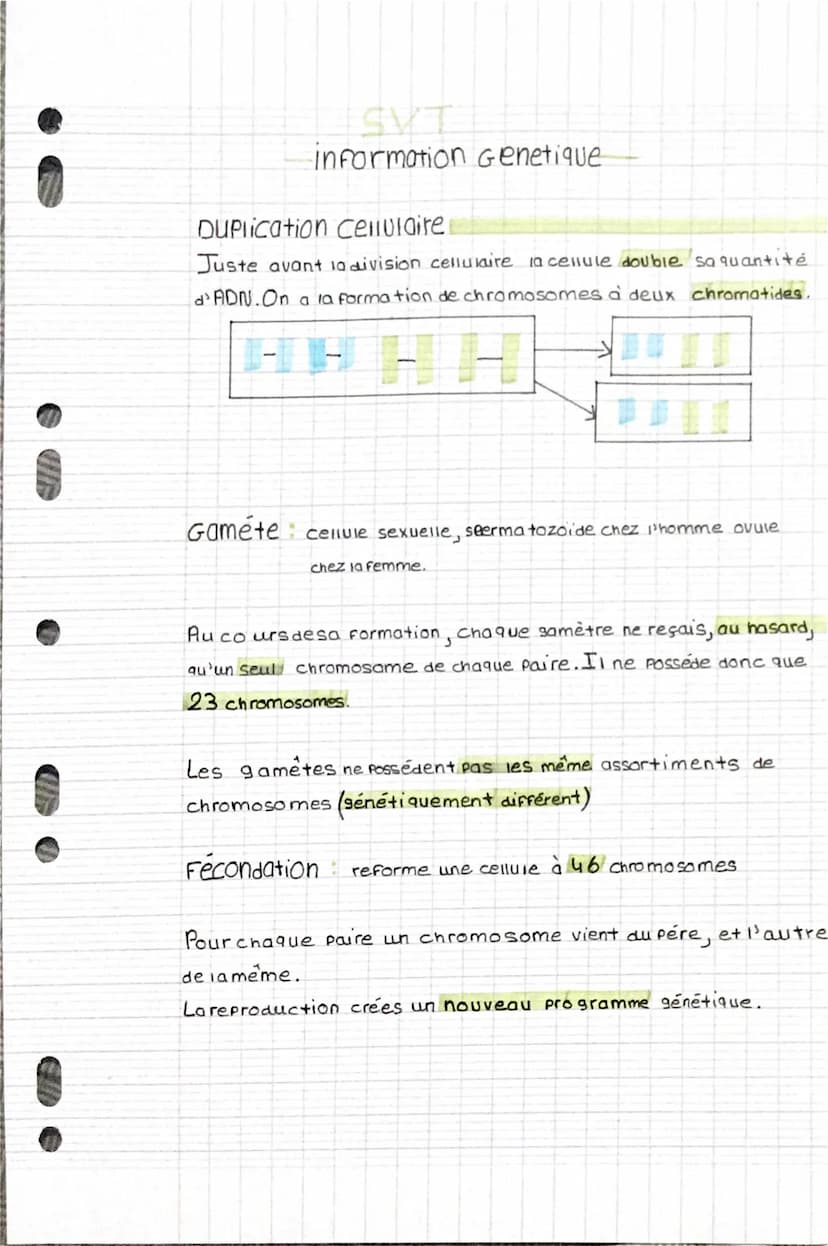 SVT
information Genetique
Duplication Cellulaire
Juste avant la division cellulaire la cellule double sa quantité
d'ADN. On a la formation de chromosomes à deux chromatides.
Gaméte : cellule sexuelle, spermatozoïde chez l'homme ovule
chez la femme.
Au cours de sa formation, chaque gamètre ne reçais, au hasard,
qu'un seul chromosome de chaque paire. Il ne posséde donc que
23 chromosomes.
Les gamêtes ne possédent pas les même assortiments de
chromosomes (génétiquement différent)
Fécondation : reforme une cellule à 46 chromosomes
Pour chaque paire un chromosome vient du pére, et l'autre
de la même.
La reproduction crées un nouveau programme génétique.